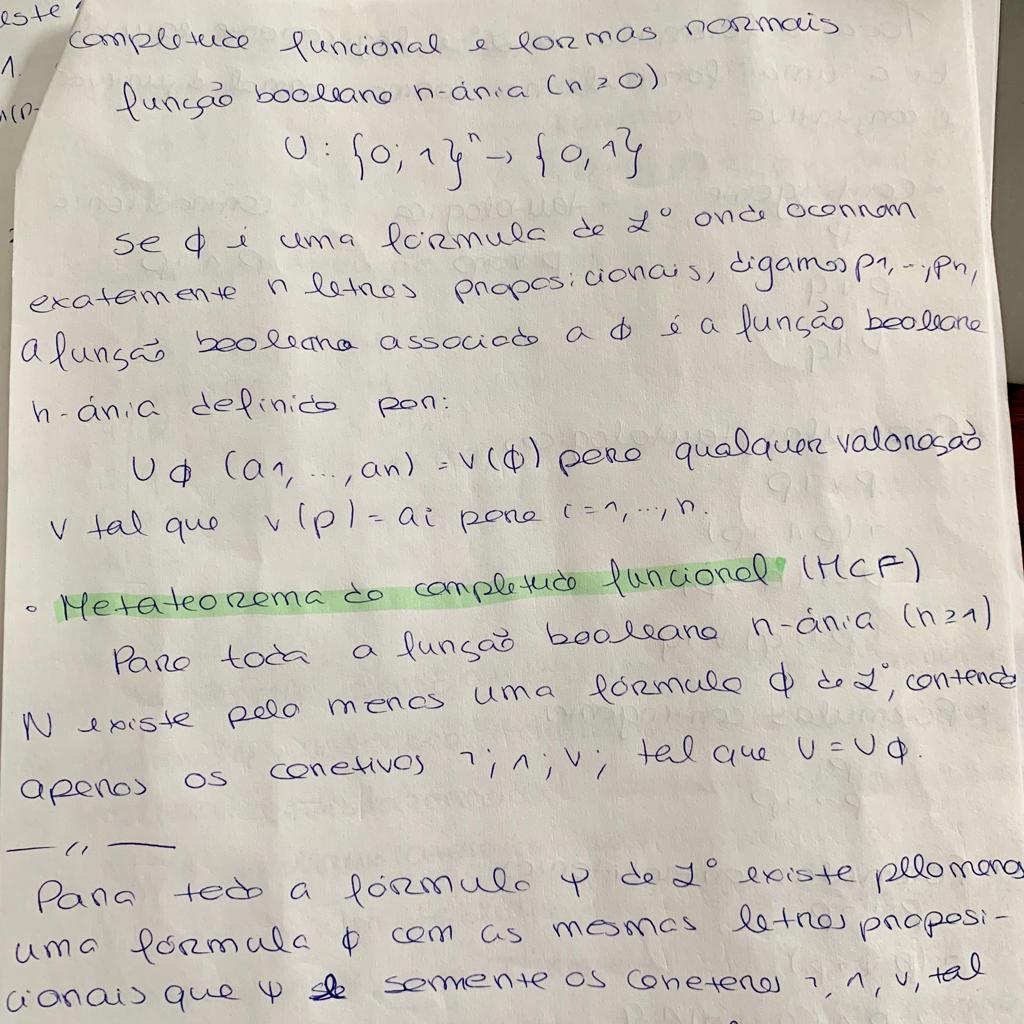 este
1.
completude funcional e formas normais
função booleana n-ária (n ≥ 0)
U : {0; 1}ⁿ → {0, 1}
Se ϕ é uma fórmula de L° onde ocorram
exatamente n letras proposicionais, digamos p1, ..., pn,
a função booleana associada a ϕ é a função booleana
n-ária definida por:
Uϕ (a1, ..., an) = v(ϕ) para qualquer valoração
v tal que v(p) = ai para i = 1, ..., n.
• Metateorema da completude funcional (MCF)
Para toda a função booleana n-ária (n ≥ 1)
N existe pelo menos uma fórmula ϕ de L°, contendo
apenas os conetivos ¬; ∧; ∨; tal que U = Uϕ.
— " —
Para toda a fórmula ψ de L° existe pelo menos
uma fórmula ϕ com as mesmas letras proposi-
cionais que ψ somente os conetores ¬, ∧, ∨, tal